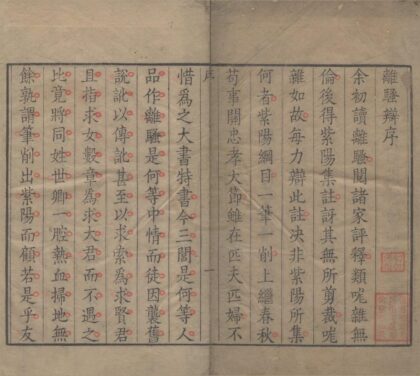 離騷辯序
余初讀離騷閱諸家評釋類哤雜無
倫後得紫陽集註訝其無所剪裁哤
雜如故每力辯此註決非紫陽所集
何者紫陽綱目一筆一削上繼春秋
苟事關忠孝大節雖在匹夫匹婦不
惜為之大書特書今三閭是何等人
品作離騷是何等中情而徒因襲舊
說訛以傳訛甚至以求索為求賢君
且指求女數章為求大君而不遇之
比竟將同姓世卿一腔熱血掃地無
餘孰謂筆削出紫陽而顧若是乎友
序
一